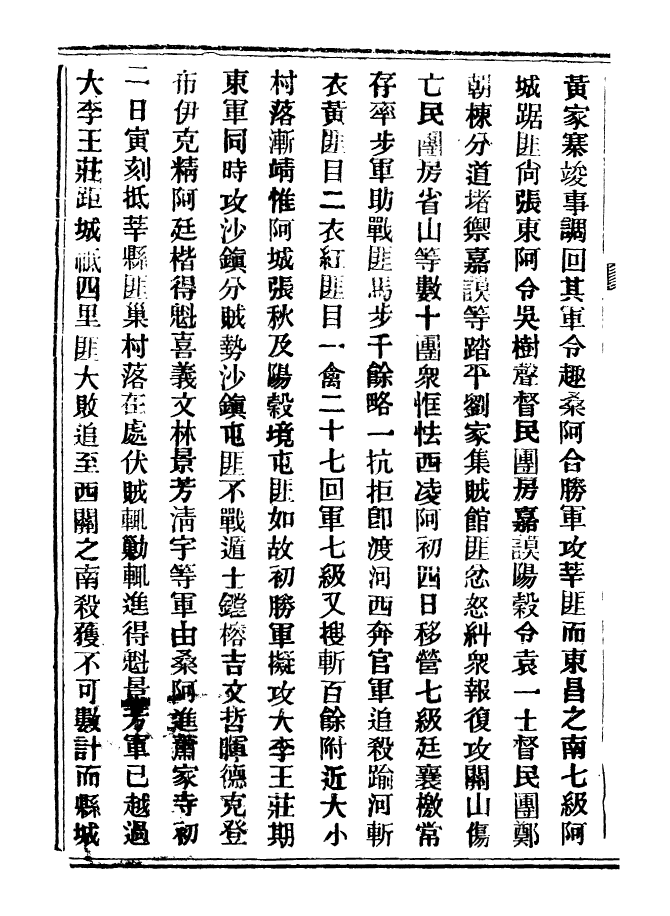 黃家寨竣事調回其軍令趣桑阿合勝軍攻莘匪而東昌之南七級阿
城踞匪尙張東阿令吳樹聲督民團房嘉謨陽穀令袁一士督民團鄭
朝棟分道堵禦嘉謨等踏平劉家集賊館匪忿怒糾衆報復攻關山傷
亡民團房省山等數十團衆恇怯西凌阿初四日移營七級廷襄檄常
存率步軍助戰匪馬步千餘略一抗拒卽渡河西奔官軍追殺踰河斬
衣黃匪目二衣紅匪目一禽二十七回軍七級又搜斬百餘附近大小
村落漸靖惟阿城張秋及陽穀境屯匪如故初勝軍擬攻大李王莊期
東軍同時攻沙鎭分賊勢沙鎭屯匪不戰遁士鏜榕吉文哲暉德克登
布伊克精阿廷楷得魁喜義文林景芳淸宇等軍由桑阿進蕭家寺初
二日寅刻抵莘縣匪巢村落在處伏賊輒勦輒進得魁景芳軍已越過
大李王莊距城祗四里匪大敗追至西關之南殺獲不可數計而縣城